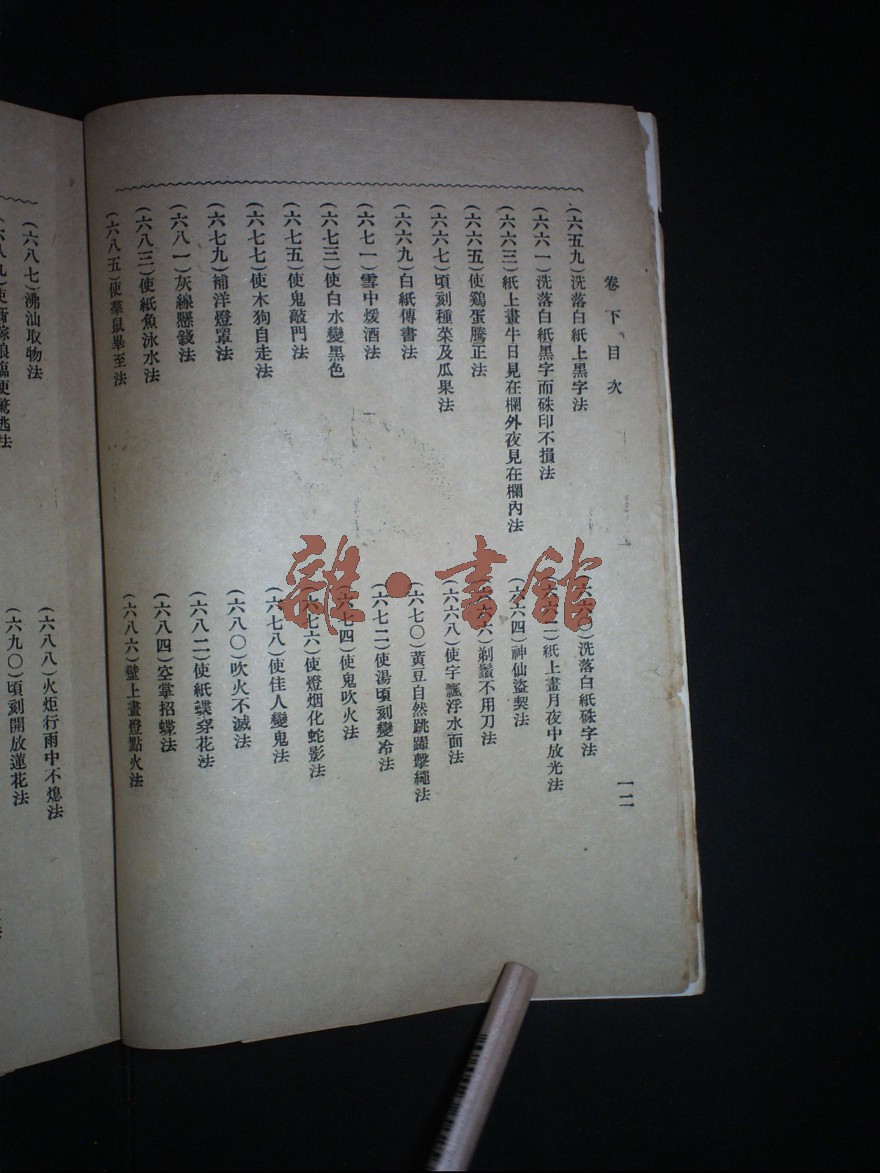 卷下目次
一二
(六五九)洗落白紙上黑字法
(六六〇)洗落白紙硃字法
(六六一)洗落白紙黑字而硃印不損法
(六六二)紙上畫月夜中放光法
(六六三)紙上畫牛日見在欄外夜見在欄內法
(六六四)神仙盜契法
(六六五)使鷄蛋騰正法
(六六六)剃鬚不用刀法
(六六七)頃刻種菜及瓜果法
(六六八)使字飄浮水面法
(六六九)白紙傳書法
(六七〇)黃豆自然跳躍擊繩法
(六七一)雪中煖酒法
(六七二)使湯頃刻變冷法
(六七三)使白水變黑色
(六七四)使鬼吹火法
(六七五)使鬼敲門法
(六七六)使燈烟化蛇影法
(六七七)使木狗自走法
(六七八)使佳人變鬼法
(六七九)補洋燈罩法
(六八〇)吹火不滅法
(六八一)灰線懸錢法
(六八二)使紙蝶穿花法
(六八三)使紙魚泳水法
(六八四)空掌招蝶法
(六八五)使羣鼠畢至法
(六八六)壁上畫燈點火法
(六八七)沸油取物法
(六八八)火炬行雨中不熄法
(六八九)使
便驚逃法
(六九〇)頃刻開放蓮花法
雜·書館